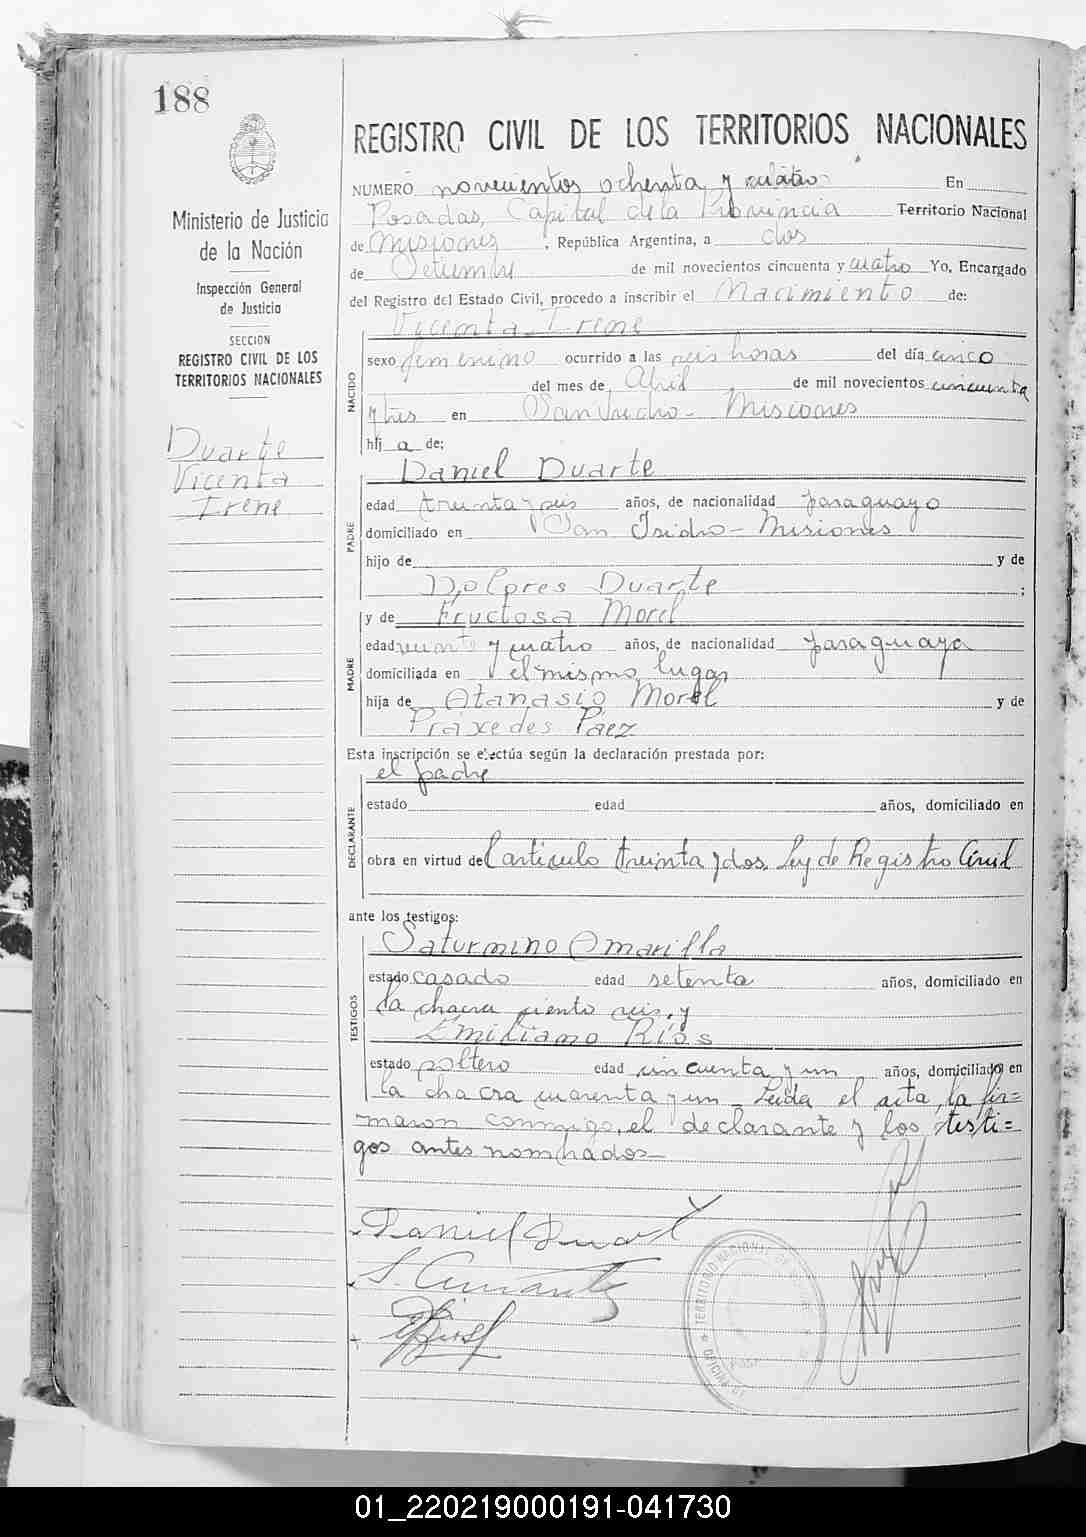 188
Ministerio de Justicia
de la Nación
Inspección General
de Justicia
SECCION
REGISTRO CIVIL DE LOS
TERRITORIOS NACIONALES
Duarte
Vicenta
Irene
REGISTRO CIVIL DE LOS TERRITORIOS NACIONALES
NUMERO novecientos ochenta y cuatro En
Posadas, Capital de la Provincia Territorio Nacional
de Misiones, República Argentina, a dos
de de mil novecientos cincuenta y cuatro Yo, Encargado
del Registro del Estado Civil, procedo a inscribir el Nacimiento de:
Vicenta Irene
NACIDO
sexo femenino ocurrido a las seis horas del día cinco
del mes de Abril de mil novecientos cincuenta
y tres en San Isidro - Misiones
hij a de:
Daniel Duarte
PADRE
edad treinta y seis años, de nacionalidad paraguayo
domiciliado en San Isidro - Misiones
hijo de y de
Dolores Duarte ;
y de Fructosa Morel
MADRE
edad veinte y cuatro años, de nacionalidad paraguaya
domiciliada en el mismo lugar
hija de Atanasio Morel y de
Práxedes Paez
Esta inscripción se efectúa según la declaración prestada por:
el padre
DECLARANTE
estado edad años, domiciliado en
obra en virtud del artículo treinta y dos, Ley de Registro Civil
ante los testigos:
Saturnino Amarilla
TESTIGOS
estado casado edad setenta años, domiciliado en
la chacra ciento seis, y
Emiliano Ríos
estado soltero edad cincuenta y un años, domiciliado en
la chacra cuarenta y un - Leida el acta, la fir=
maron conmigo, el declarante y los testi=
gos antes nombrados -
Daniel Duarte
TERRITORIO NACIONAL DE
OFICINA
01_220219000191-041730